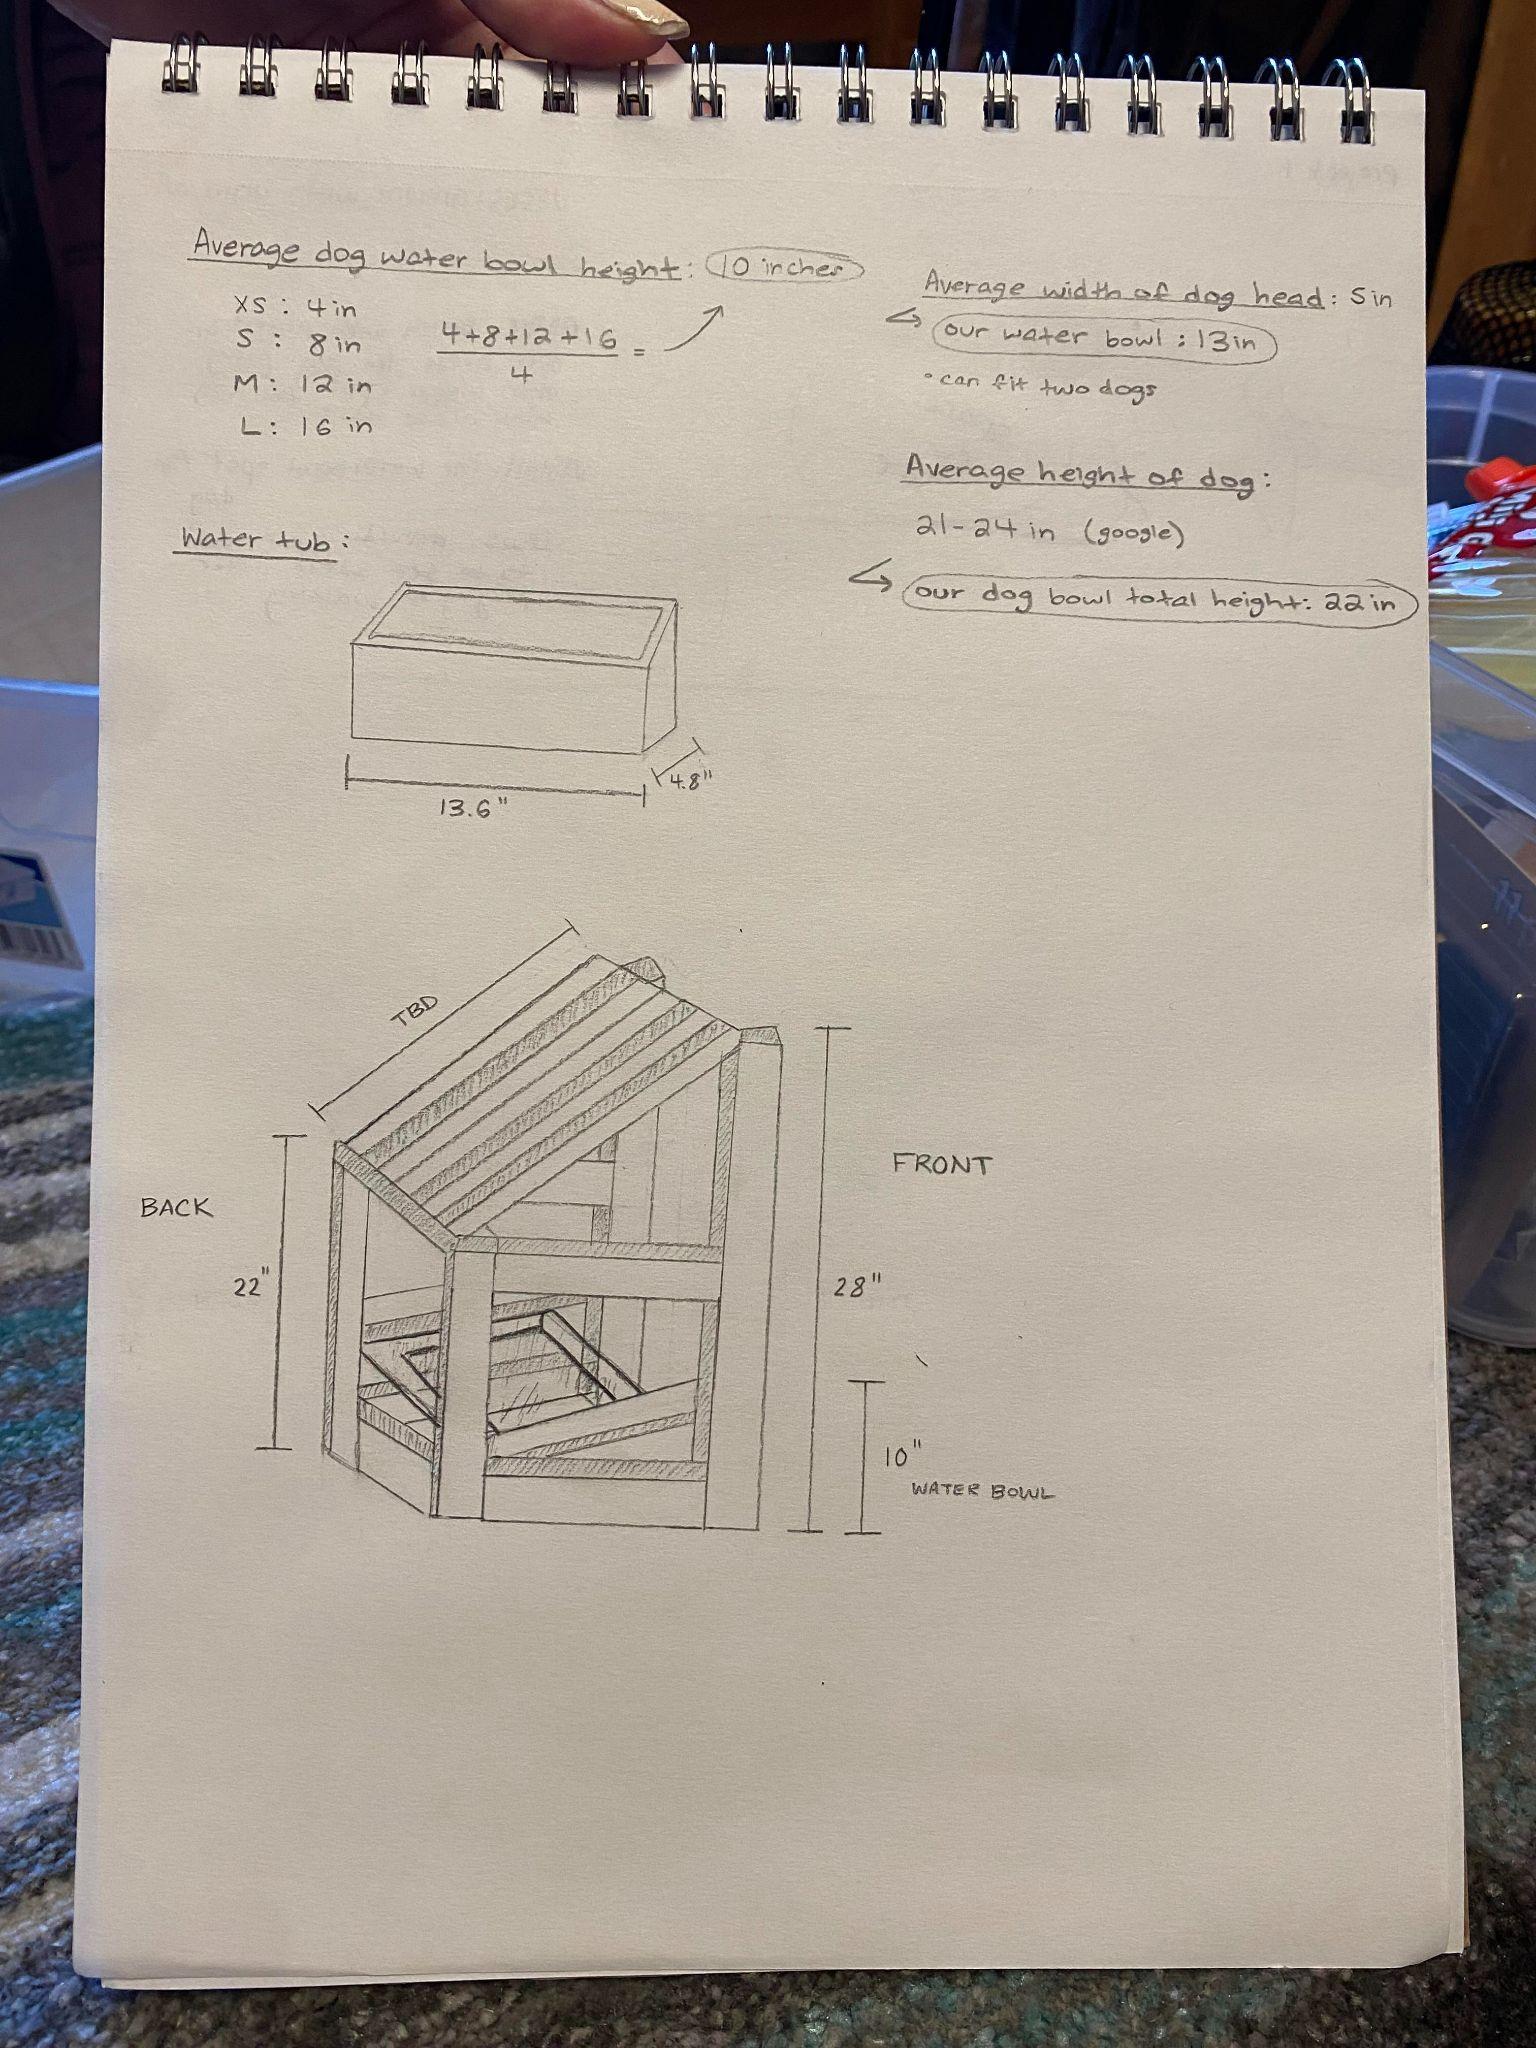 Average dog water bowl height: 10 inches
XS: 4in
S: 8in
M: 12 in
L: 16 in
4+8+12+16
4
=
Average width of dog head: 5in
our water bowl: 13in
• can fit two dogs
Average height of dog:
21-24 in (google)
our dog bowl total height: 22in
Water tub:
4.8"
13.6"
TBD
BACK
22"
FRONT
28"
10"
WATER BOWL